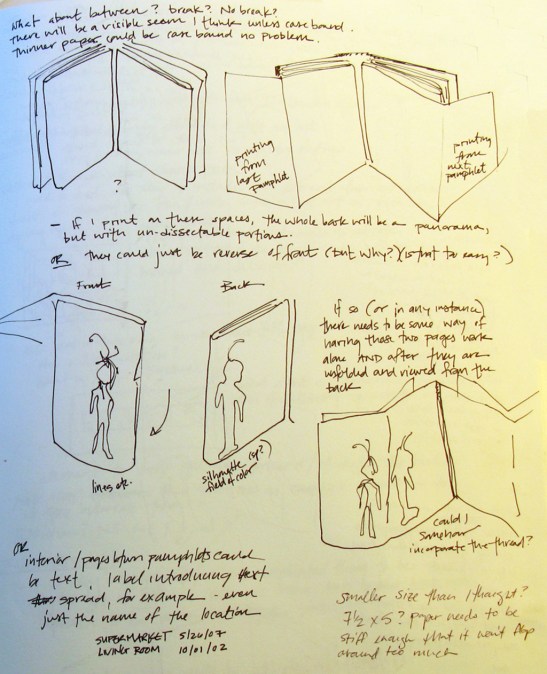 What about between? break? No break?
there will be a visible seem I think unless case bound.
thinner paper could be case bound no problem.
?
printing
from
last
pamphlet
printing
from
next
pamphlet
- If I print on these spaces, the whole back will be a panorama,
but with un-dissectable portions.
OR they could just be reverse of front (but why?) (is that too easy?)
Front
Back
lines etc.
silhouette (sp?)
field of color
If so (or in any instance)
there needs to be some way of
having these two pages work
alone AND after they are
unfolded and viewed from the
back
could I
somehow
incorporate the thread?
OR
interior/pages btwn pamphlets could
be text, label introducing next
spread, for example - even
just the name of the location
SUPERMARKET 5/26/07
LIVING ROOM 10/01/02
Smaller size than I thought?
7 1/2 x 5? paper needs to be
stiff enough that it won't flop
around too much